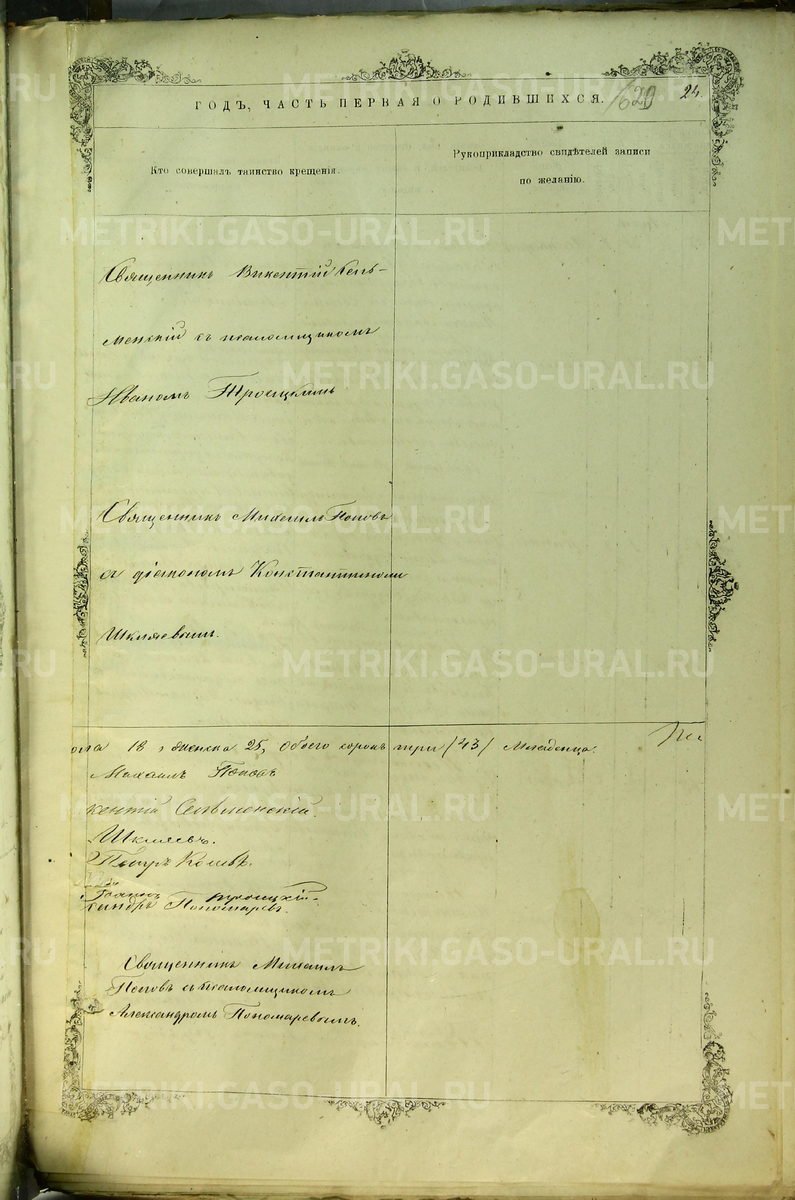 ГОДЪ, ЧАСТЬ ПЕРВАЯ О РОДИВШИХСЯ. 629 24.
Кто совершалъ таинство крещенія.
Рукоприкладство свидѣтелей записи
по желанію.
Священникъ Викентій Сель-
менскій съ псаломщикомъ
Иваномъ Троицкимъ
Священникъ Михаилъ Поповъ
съ діакономъ Константиномъ
Шкляевымъ.
пола 18 а женска 25, Обоего сорокъ три (43) Младенца.
Михаилъ Поповъ
кентій Сельменскій.
Шкляевъ.
Петръ
Троицкій.
сандръ Пономаревъ.
Священникъ Михаилъ
Поповъ съ псаломщикомъ
Александромъ Пономаревымъ.
METRIKI.GASO-URAL.RU